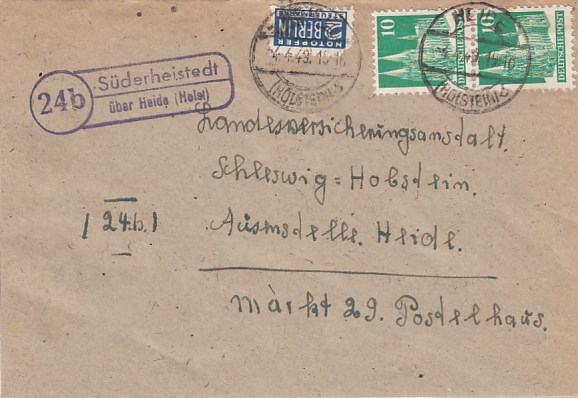 24b
Süderheistedt
über Heide (Holst)
NOTOPFER
2 BERLIN
STEUERMARKE
10
DEUTSCHE POST
10
DEUTSCHE POST
HEIDE
4.4.49.15-16
(HOLSTEIN)
(HOLSTEIN)
Landesversicherungsanstalt.
Schleswig=Holstein.
/24b./
Aussenstelle. Heide.
Markt 29. Postelhaus.